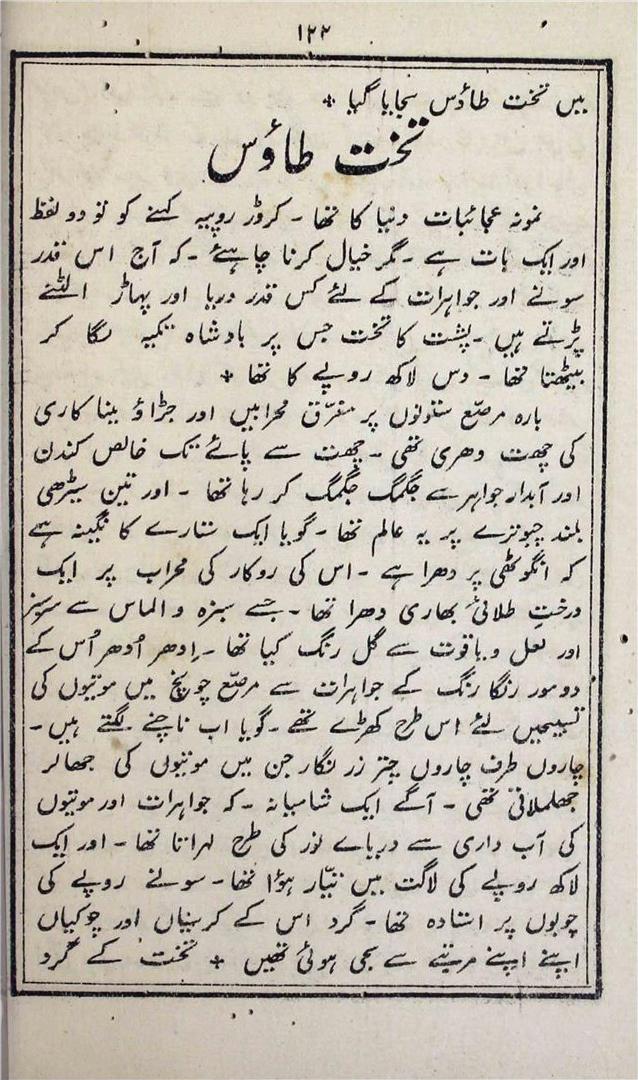 ۱۲۲
میں تخت طاؤس سجایا گیا ٭
تخت طاؤس
نمونہ عجائبات دنیا کا تھا - کروڑ روپیہ کہنے کو تو دو لفظ
اور ایک بات ہے - مگر خیال کرنا چاہئے - کہ آج اس قدر
سونے اور جواہرات کے لئے کس قدر دریا اور پہاڑ الٹنے
پڑتے ہیں - پشت کا تخت جس پر بادشاہ تکیہ لگا کر
بیٹھتا تھا - دس لاکھ روپے کا تھا ٭
بارہ مرصّع ستونوں پر مغرّق محرابیں اور جڑاؤ مینا کاری
کی چھت دھری تھی - چھت سے پائے تک خالص کندن
اور آبدار جواہر سے جگمگ جگمگ کر رہا تھا - اور تین سیڑھی
بلند چبوترے پر یہ عالم تھا - گویا ایک ستارے کا نگینہ ہے
کہ انگوٹھی پر دھرا ہے - اس کی روکار کی محراب پر ایک
درختِ طلائی بھاری دھرا تھا - جسے سبزہ و الماس سے سرسبز
اور لعل و یاقوت سے گل رنگ کیا تھا - اِدھر اُدھر اُس کے
دو مور رنگا رنگ کے جواہرات سے مرصّع چونچ میں موتیوں کی
تسبیحیں لئے اس طرح کھڑے تھے - گویا اب ناچنے لگتے ہیں -
چاروں طرف چاروں چتر زر نگار جن میں موتیوں کی جھالر
جھلملاتی تھی - آگے ایک شامیانہ - کہ جواہرات اور موتیوں
کی آب داری سے دریاے نور کی طرح لہراتا تھا - اور ایک
لاکھ روپے کی لاگت میں تیّار ہؤا تھا - سونے روپے کی
چوبوں پر استادہ تھا - گرد اس کے کرسیاں اور چوکیاں
اپنے اپنے مرتبے سے سجی ہوئی تھیں ٭ تخت کے گرد